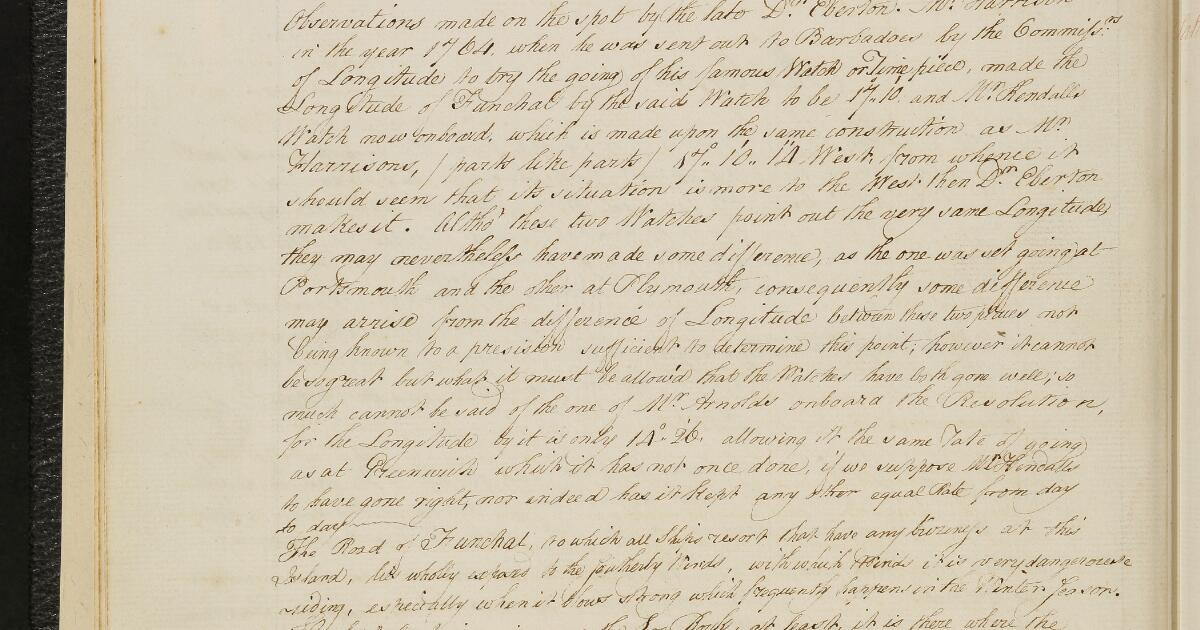 Observations made on the spot by the late Dr. Eberton. Mr. Harrison
in the year 1764 when he was sent out to Barbadoes by the Commissrs
of Longitude to try the going of his famous Watch or Time piece, made the
Longitude of Funchal by the said Watch to be 17..10. and Mr Kendalls
Watch now onboard, which is made upon the same construction as Mr
Harrisons, (parts like parts) 17°.. 10.. 14 West from whence it
should seem that its situation is more to the West then Dr. Eberton
makes it. Altho' these two Watches point out the very same Longitude,
they may nevertheless have made some difference, as the one was set going at
Portsmouth and the other at Plymouth, consequently some difference
may arrise from the difference of Longitude between these two places not
being known to a presision sufficient to determine this point, however it cannot
be so great but what it must be allow'd that the Watches have both gone well; so
much cannot be said of the one of Mr Arnolds onboard the Resolution,
for the Longitude by it is only 14°.. 26. allowing it the same rate of going
as at Greenwich which it has not once done, if we suppose Mr Kendalls
to have gone right, nor indeed has it kept any other equal Rate from day
to day
The Road of Funchal, to which all Ships resort that have any buziness at this
Island, lies wholly to the southerly Winds, with which Winds it is very dangerouse
riding, especially when it blows strong which frequently happens in the Winter Season.
at least, it is there where the